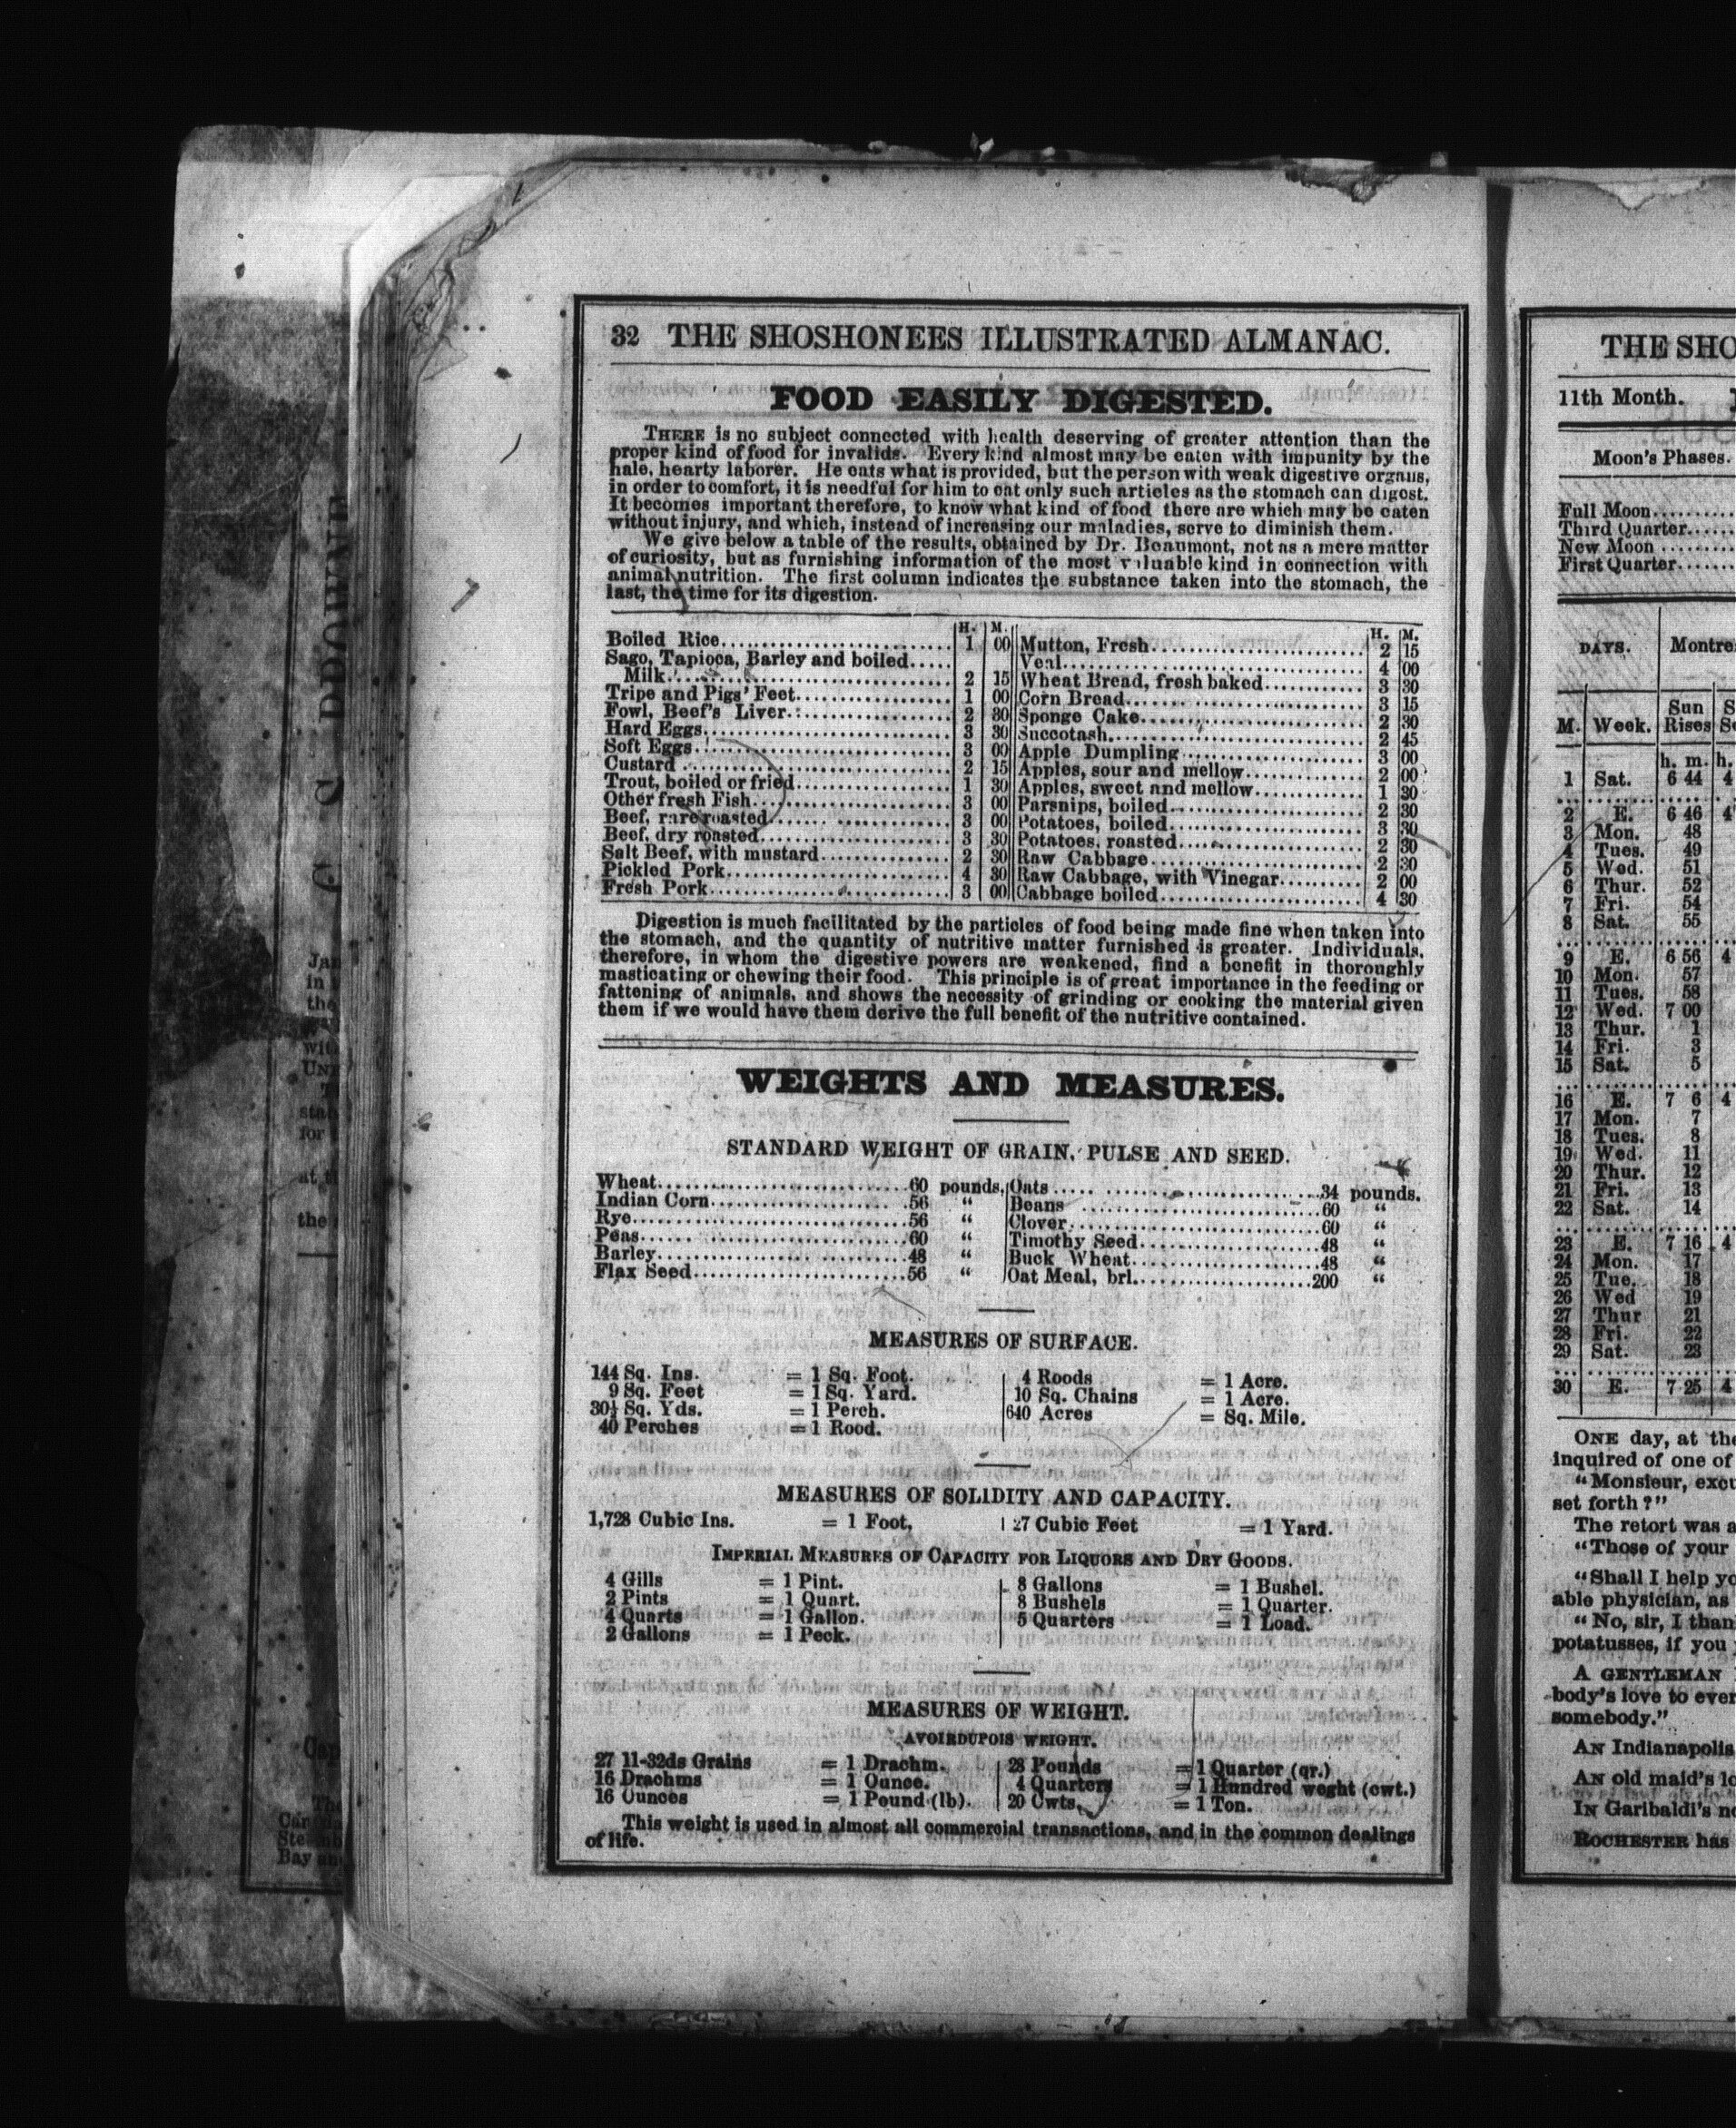 32 THE SHOSHONEES ILLUSTRATED ALMANAC.
FOOD EASILY DIGESTED.
THERE is no subject connected with health deserving of greater attention than the
proper kind of food for invalids. Every kind almost may be eaten with impunity by the
hale, hearty laborer. He eats what is provided, but the person with weak digestive organs,
in order to comfort, it is needful for him to eat only such articles as the stomach can digest.
It becomes important therefore, to know what kind of food there are which may be eaten
without injury, and which, instead of increasing our maladies, serve to diminish them.
We give below a table of the results, obtained by Dr. Beaumont, not as a mere matter
of curiosity, but as furnishing information of the most valuable kind in connection with
animal nutrition. The first column indicates the substance taken into the stomach, the
last, the time for its digestion.
H. M.
Boiled Rice 1 00
Sago, Tapioca, Barley and boiled
Milk 2 15
Tripe and Pigs' Feet 1 00
Fowl, Beef's Liver 2 30
Hard Eggs 3 30
Soft Eggs 3 00
Custard 2 15
Trout, boiled or fried 1 30
Other fresh Fish 3 00
Beef, rare roasted 3 00
Beef, dry roasted 3 30
Salt Beef, with mustard 2 30
Pickled Pork 4 30
Fresh Pork 3 00
H. M.
Mutton, Fresh 2 15
Veal 4 00
Wheat Bread, fresh baked 3 30
Corn Bread 3 15
Sponge Cake 2 30
Succotash 2 45
Apple Dumpling 3 00
Apples, sour and mellow 2 00
Apples, sweet and mellow 1 30
Parsnips, boiled 2 30
Potatoes, boiled 3 30
Potatoes, roasted 2 30
Raw Cabbage 2 30
Raw Cabbage, with Vinegar 2 00
Cabbage boiled 4 30
Digestion is much facilitated by the particles of food being made fine when taken into
the stomach, and the quantity of nutritive matter furnished is greater. Individuals,
therefore, in whom the digestive powers are weakened, find a benefit in thoroughly
masticating or chewing their food. This principle is of great importance in the feeding or
fattening of animals, and shows the necessity of grinding or cooking the material given
them if we would have them derive the full benefit of the nutritive contained.
WEIGHTS AND MEASURES.
STANDARD WEIGHT OF GRAIN, PULSE AND SEED.
Wheat 60 pounds.
Indian Corn 56 "
Rye 56 "
Peas 60 "
Barley 48 "
Flax Seed 56 "
Oats 34 pounds.
Beans 60 "
Clover 60 "
Timothy Seed 48 "
Buck Wheat 48 "
Oat Meal, brl. 200 "
MEASURES OF SURFACE.
144 Sq. Ins. = 1 Sq. Foot.
9 Sq. Feet = 1 Sq. Yard.
30¼ Sq. Yds. = 1 Perch.
40 Perches = 1 Rood.
4 Roods = 1 Acre.
10 Sq. Chains = 1 Acre.
640 Acres = Sq. Mile.
MEASURES OF SOLIDITY AND CAPACITY.
1,728 Cubic Ins. = 1 Foot, | 27 Cubic Feet = 1 Yard.
IMPERIAL MEASURES OF CAPACITY FOR LIQUORS AND DRY GOODS.
4 Gills = 1 Pint.
2 Pints = 1 Quart.
4 Quarts = 1 Gallon.
2 Gallons = 1 Peck.
8 Gallons = 1 Bushel.
8 Bushels = 1 Quarter.
5 Quarters = 1 Load.
MEASURES OF WEIGHT.
AVOIRDUPOIS WEIGHT.
27 11-32ds Grains = 1 Drachm.
16 Drachms = 1 Ounce.
16 Ounces = 1 Pound (lb).
28 Pounds = 1 Quarter (qr.)
4 Quarters = 1 Hundred weght (cwt.)
20 Cwts. = 1 Ton.
This weight is used in almost all commercial transactions, and in the common dealings
of life.
THE SHO
11th Month.
Moon's Phases.
Full Moon
Third Quarter
New Moon
First Quarter
DAYS. Montre
M. Week. Sun Rises
h. m. h.
1 Sat. 6 44 4
2 E. 6 46 4
3 Mon. 48
4 Tues. 49
5 Wed. 51
6 Thur. 52
7 Fri. 54
8 Sat. 55
9 E. 6 56 4
10 Mon. 57
11 Tues. 58
12 Wed. 7 00
13 Thur. 1
14 Fri. 3
15 Sat. 5
16 E. 7 6 4
17 Mon. 7
18 Tues. 8
19 Wed. 11
20 Thur. 12
21 Fri. 13
22 Sat. 14
23 E. 7 16 4
24 Mon. 17
25 Tue. 18
26 Wed 19
27 Thur 21
28 Fri. 22
29 Sat. 23
30 E. 7 25 4
ONE day, at the
inquired of one of
"Monsieur, excu
set forth?"
The retort was a
"Those of your
"Shall I help yo
able physician, as
"No, sir, I than
potatusses, if you
A GENTLEMAN
body's love to ever
somebody."
AN Indianapolis
AN old maid's lo
IN Garibaldi's no
ROCHESTER has